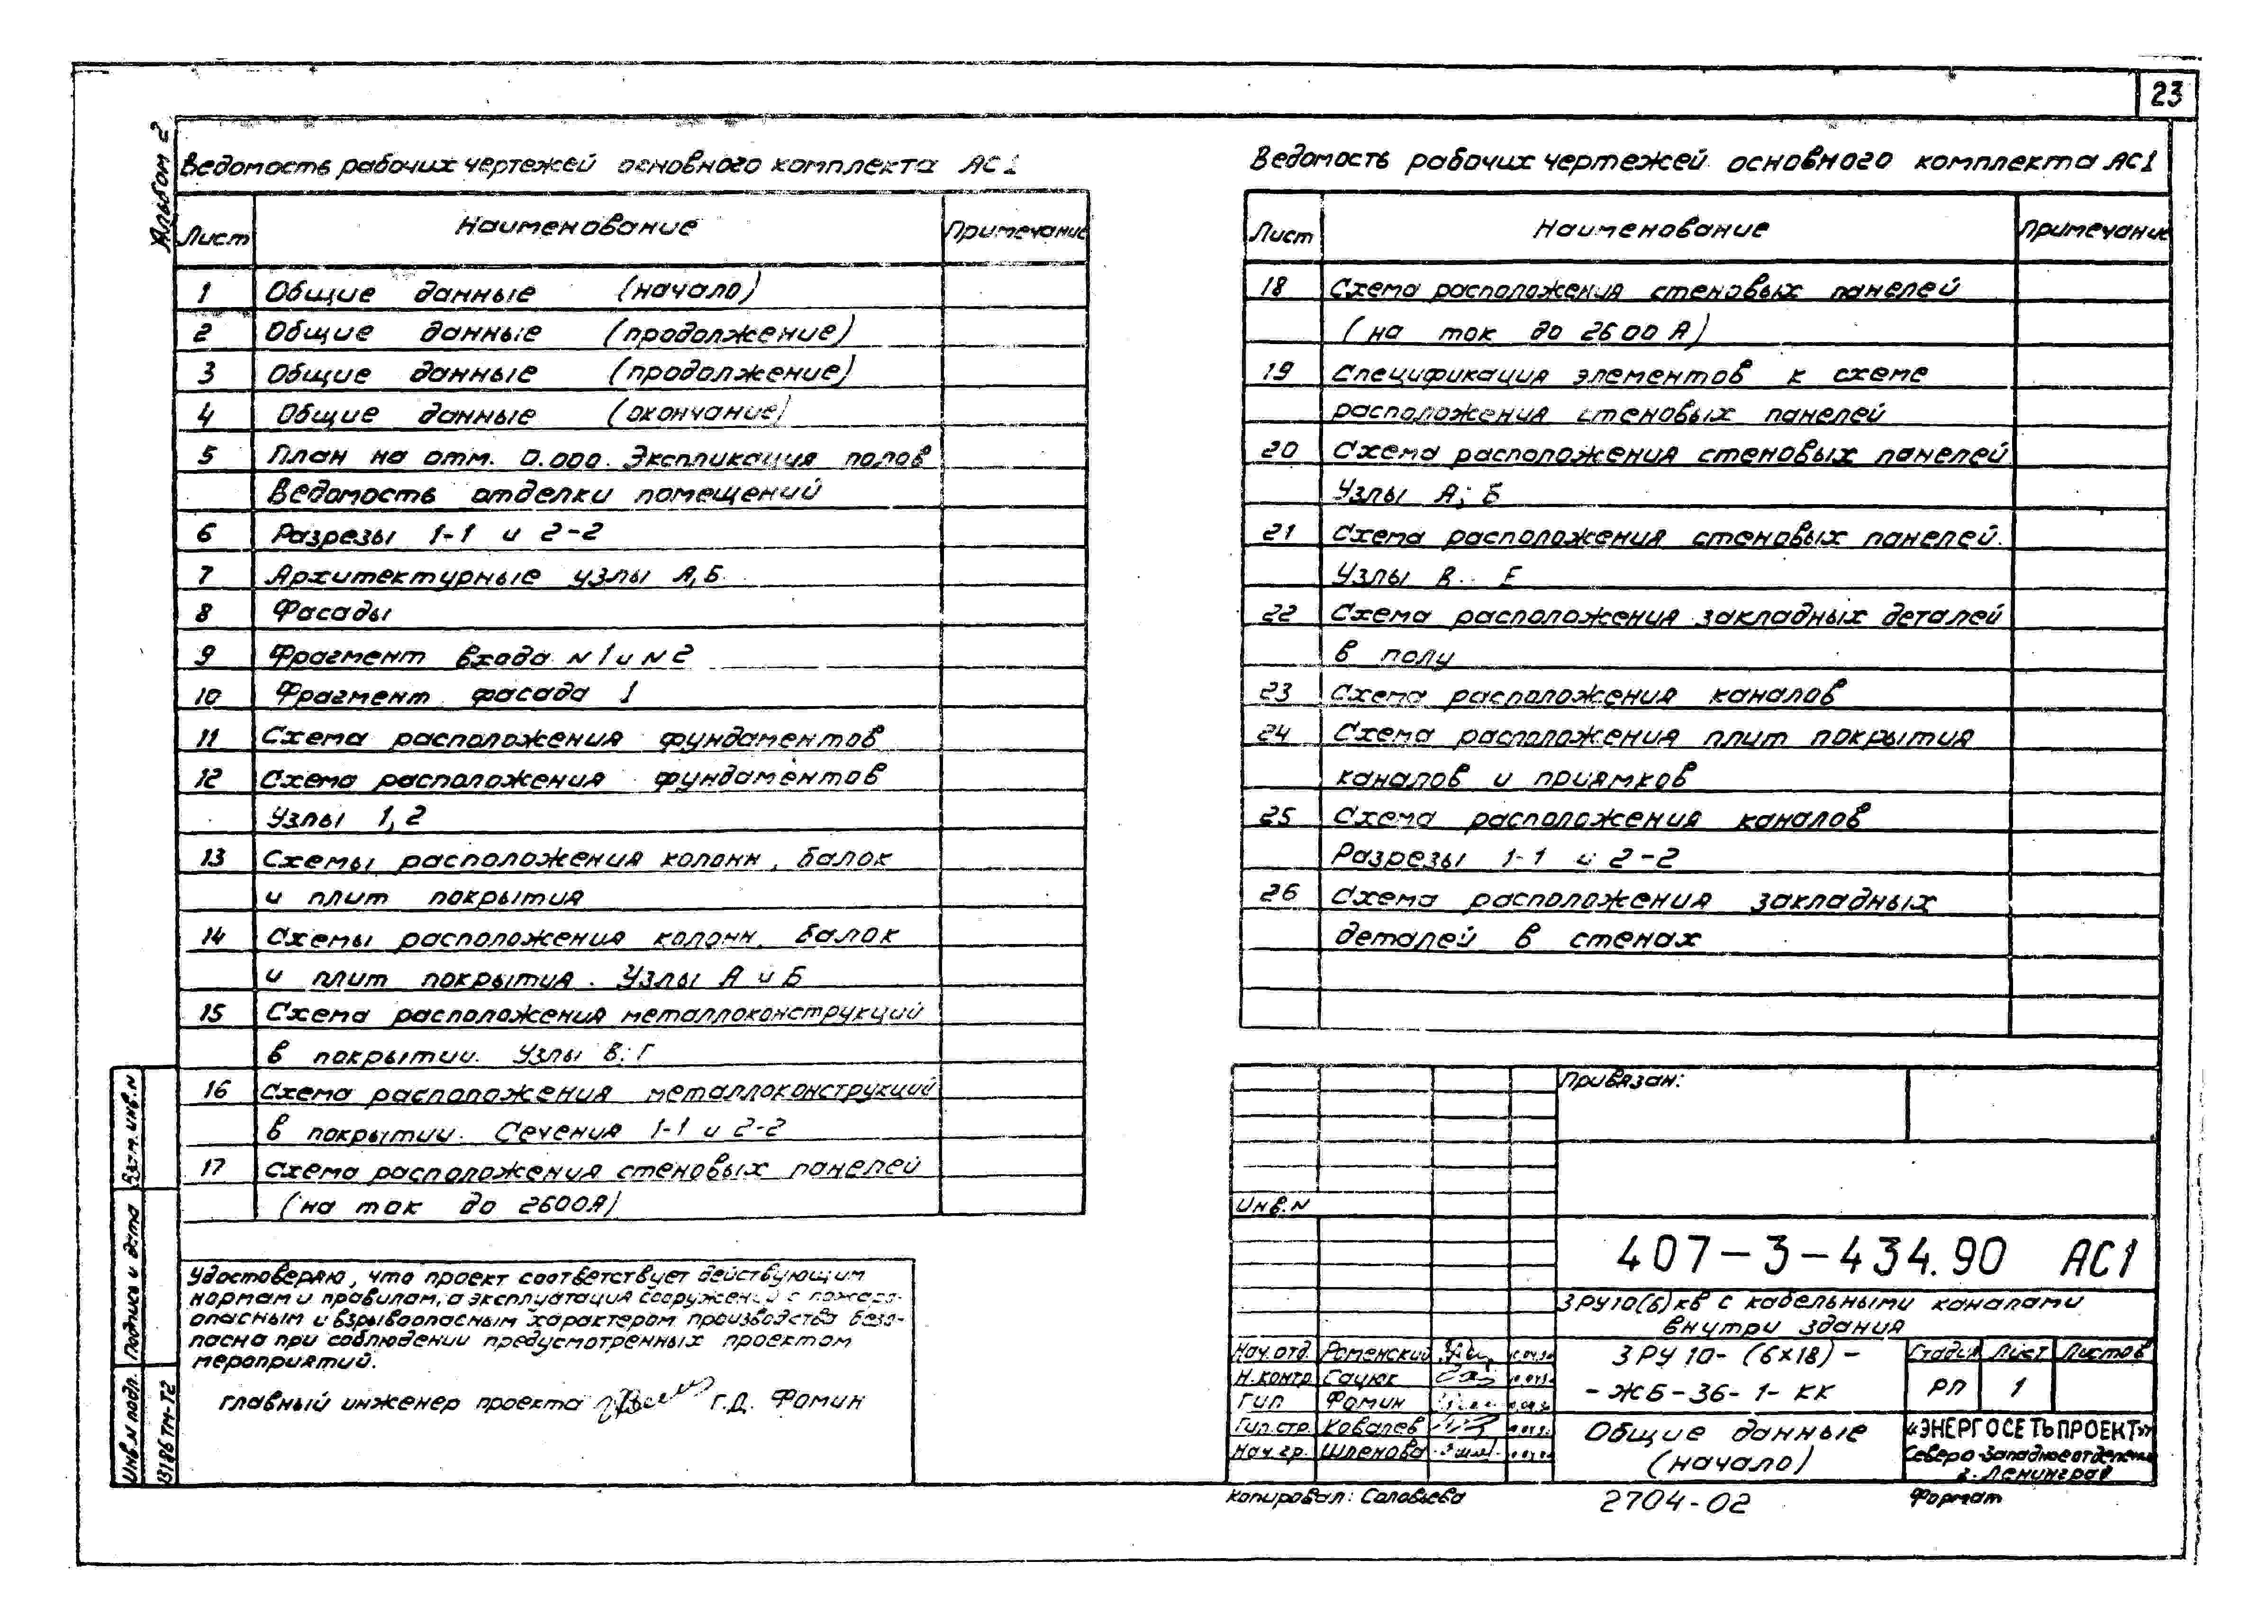 23
Альбом 2
Ведомость рабочих чертежей основного комплекта АС1
Лист Наименование Примечание
1 Общие данные (начало)
2 Общие данные (продолжение)
3 Общие данные (продолжение)
4 Общие данные (окончание)
5 План на отм. 0.000. Экспликация полов
Ведомость отделки помещений
6 Разрезы 1-1 и 2-2
7 Архитектурные узлы А,Б.
8 Фасады
9 Фрагмент входа N1 и N2
10 Фрагмент фасада 1
11 Схема расположения фундаментов
12 Схема расположения фундаментов
Узлы 1,2
13 Схемы расположения колонн, балок
и плит покрытия
14 Схемы расположения колонн, балок
и плит покрытия. Узлы А и Б
15 Схема расположения металлоконструкций
в покрытии. Узлы В; Г
16 Схема расположения металлоконструкций
в покрытии. Сечения 1-1 и 2-2
17 Схема расположения стеновых панелей
(на ток до 2600А)
Ведомость рабочих чертежей основного комплекта АС1
Лист Наименование Примечание
18 Схема расположения стеновых панелей
(на ток до 2600 А)
19 Спецификация элементов к схеме
расположения стеновых панелей
20 Схема расположения стеновых панелей
Узлы А; Б
21 Схема расположения стеновых панелей.
Узлы В.. Е
22 Схема расположения закладных деталей
в полу
23 Схема расположения каналов
24 Схема расположения плит покрытия
каналов и приямков
25 Схема расположения каналов
Разрезы 1-1 и 2-2
26 Схема расположения закладных
деталей в стенах
Удостоверяю, что проект соответствует действующим
нормам и правилам, а эксплуатация сооружений с пожаро-
опасным и взрывоопасным характером производства безо-
пасна при соблюдении предусмотренных проектом
мероприятий.
главный инженер проекта Г.Д. Фомин
Взам. инв. N
Подпись и дата
Инв. N подл.
13186ТМ-Т2
Привязан:
Инв. N
407-3-434.90 АС1
ЗРУ10(6)кв с кабельными каналами
внутри здания
Нач.отд. Роменский
Н.контр. Сацюк
ГИП Фомин
Гип.стр. Ковалев
Нач.гр. Шленова
ЗРУ 10-(6х18)-
-ЖБ-36-1-КК
Стадия Лист Листов
РП 1
Общие данные
(начало)
«ЭНЕРГОСЕТЬПРОЕКТ»
Северо-Западное отделение
г. Ленинград
Копировал: Соловьева
2704-02
Формат